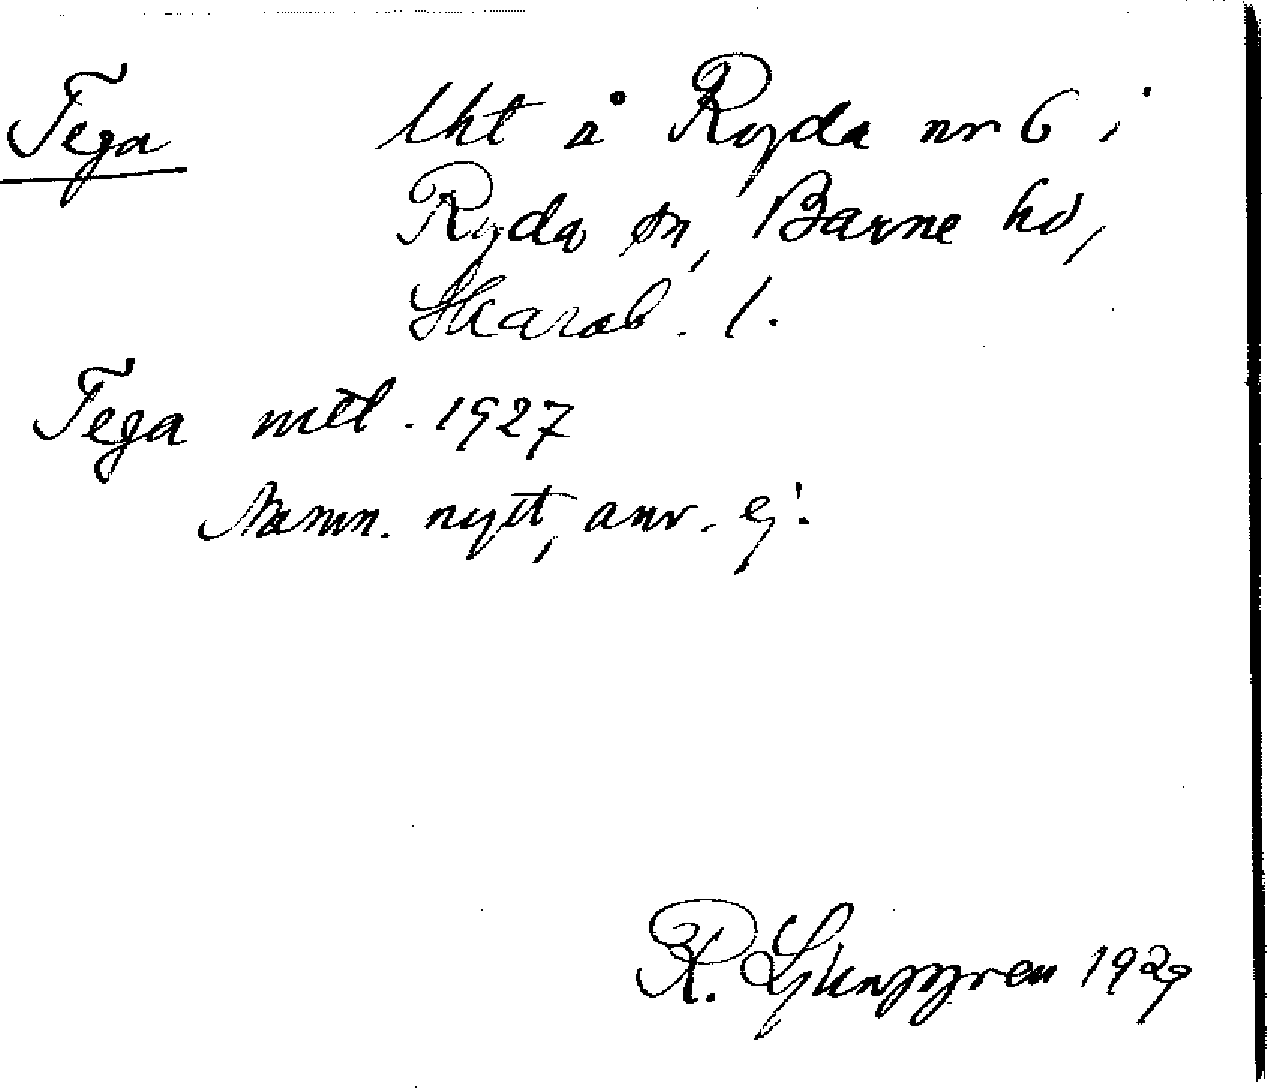 Tega lht å Ryda nr 6 i
Ryda sn, Barne hd,
Skarab. l.
Tega mtl. 1927
Namn. nytt, anv. ej.
R. Ljunggren 1929